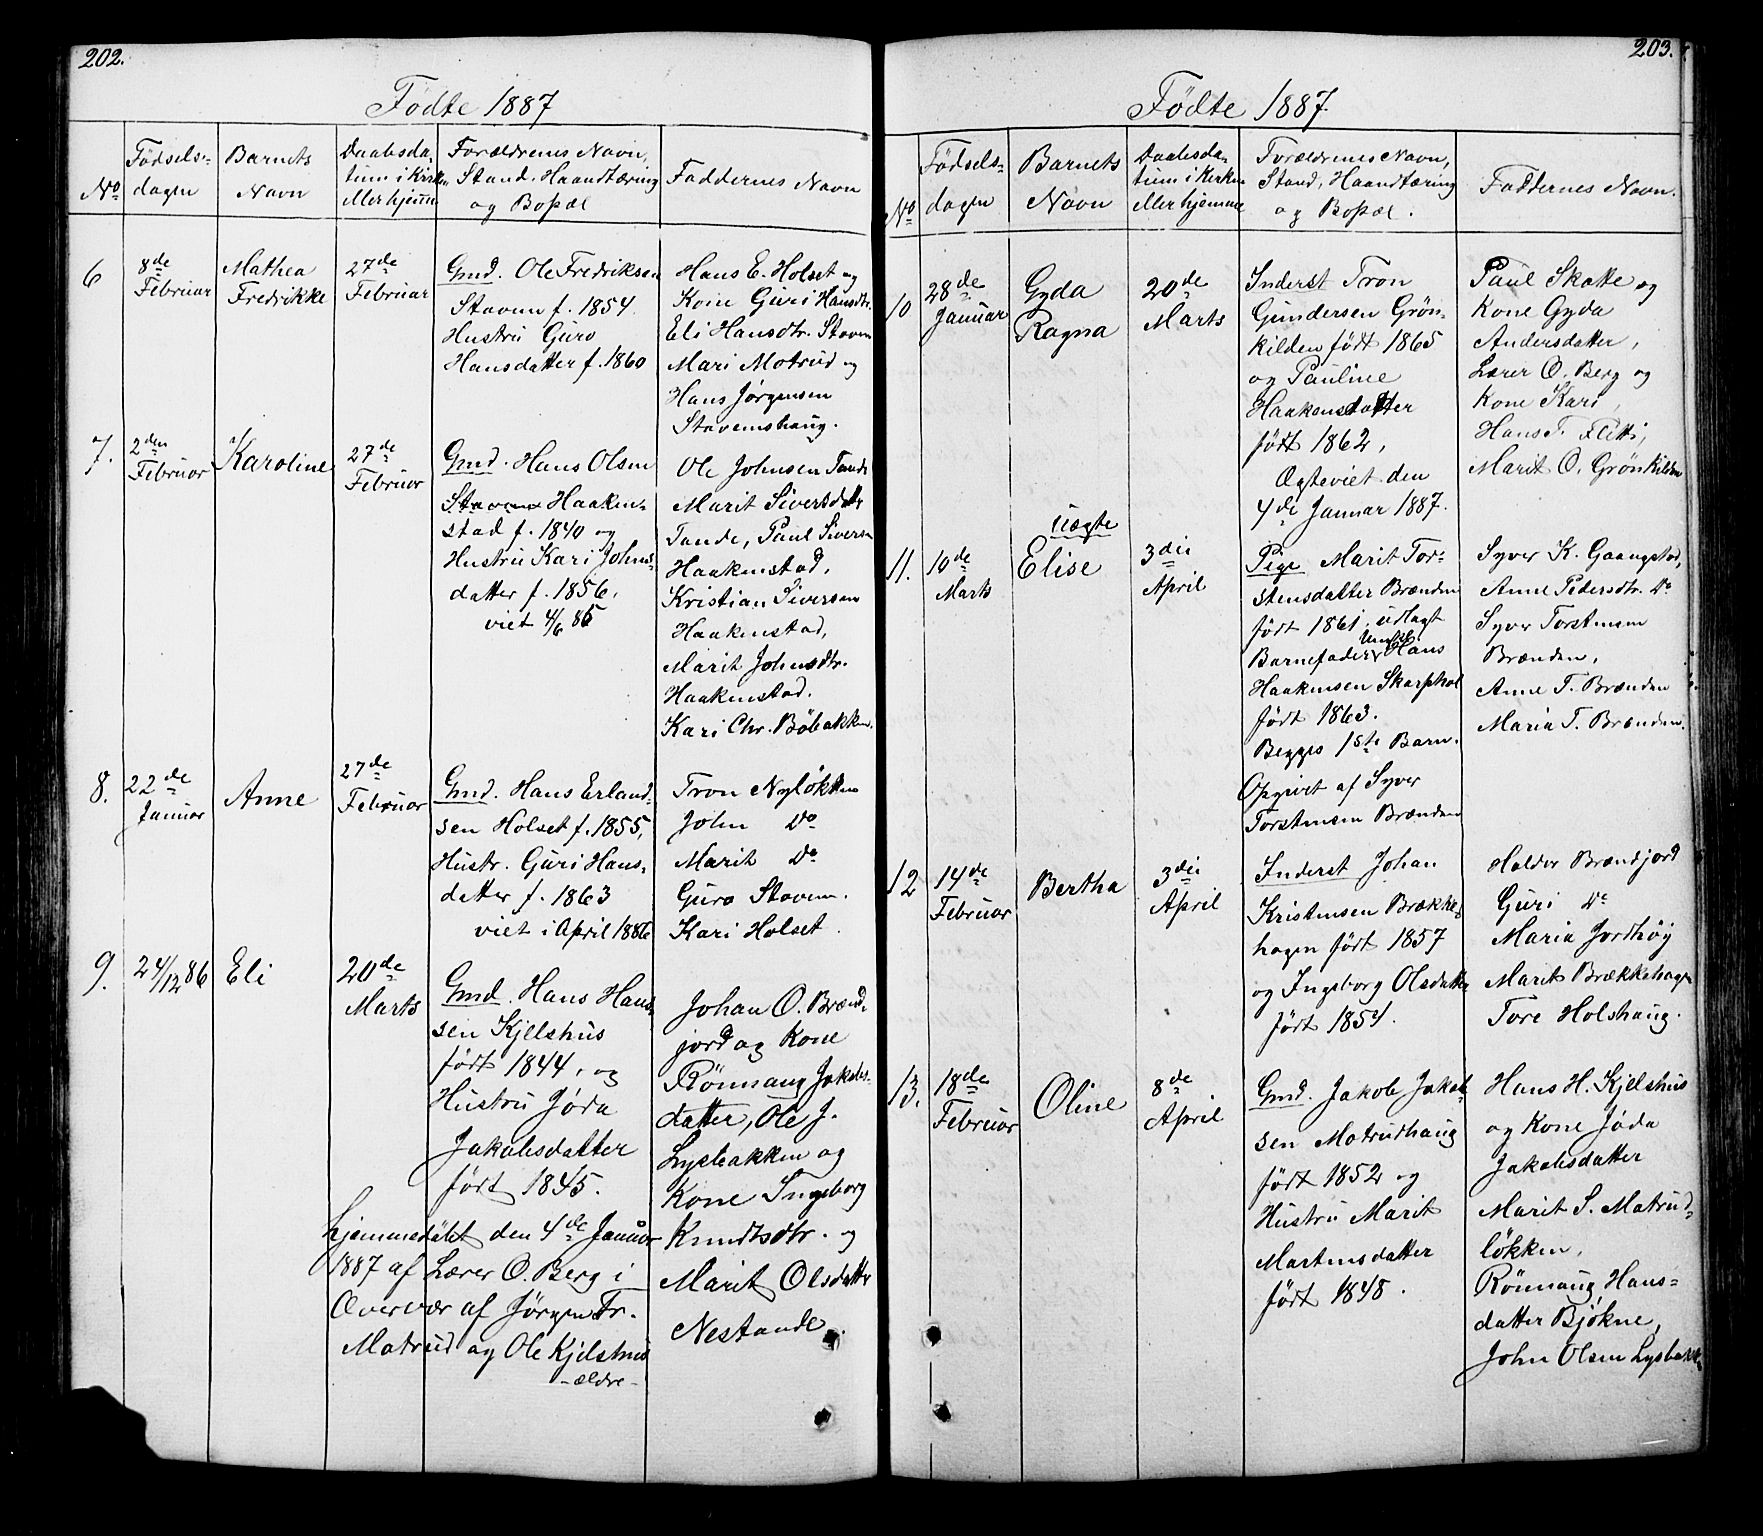 202.
Fødte 1887
No
Fødsels-
dagen
Barnets
Navn
Daabsda-
tum i Kirken
eller hjemme
Forældrenes Navn,
Stand, Haandtæring
og Bopæl
Faddernes Navn
6
8de
Februar
Mathea
Fredrikke
27de
Februar
Gmd. Ole Fredriksen
Stavem f. 1854
Hustru Guro
Hansdatter f. 1860
Hans E. Holset og
Kone Guri Hansdtr.
Eli Hansdtr. Stavem
Mari Motrud og
Hans Jørgensen
Stavemshaug.
7.
2den
Februar
Karoline
27de
Februar
Gmd. Hans Olsen
Stavem Haaken-
stad f. 1840 og
Hustru Kari Johns-
datter f. 1856.
viet 4/6 85
Ole Johnsen Tande
Marit Siversdatter
Tande, Paul Siversen
Haakenstad,
Kristian Siversen
Haakenstad,
Marit Johnsdtr.
Haakenstad.
Kari Chr. Böbakken.
8.
22de
Januar
Anne
27de
Februar
Gmd. Hans Erland-
sen Holset f. 1855,
Hustr. Guri Hans-
datter f. 1863
viet i April 1886
Tron Nyløkken
John Do
Marit Do
Guro Stavem.
Kari Holset.
9.
24/12 86
Eli
20de
Marts
Gmd. Hans Han-
sen Kjelshus
født 1844, og
Hustru Jøda
Jakobsdatter
født 1845.
Hjemmedøbt den 4de Januar
1887 af Lærer O. Berg i
Overvær af Jørgen Fr.
Motrud og Ole Kjelshus
-ældre-
Johan O. Brænd-
jord og Kone
Rönnaug Jakobs-
datter, Ole J.
Lysbakken og
Kone Ingeborg
Knudtsdtr. og
Marit Olsdatter
Nestande.
203.
Fødte 1887.
No
Fødsels-
dagen
Barnets
Navn
Daabsda-
tum i Kirken
eller hjemme
Forældrenes Navn,
Stand, Haandtæring
og Bopæl.
Faddernes Navn.
10
28de
Januar
Gyda
Ragna
20de
Marts
Inderst Tron
Gundersen Grön-
kilden født 1865
og Pauline
Haakensdatter
født 1862,
Ægteviet den
4de Januar 1887.
Paul Skotte og
Kone Gyda
Andersdatter,
Lærer O. Berg og
Kone Kari,
Hans T. Fletti,
Marit O. Grönkilden
11.
10de
Marts
uægte
Elise
3die
April
Pige Marit Tor-
stensdatter Brænden
født 1861, udlagt
Barnefader Ungk. Hans
Haakensen Skarphol
født 1863.
Begges 1ste Barn.
Opgivet af Syver
Torstensen Brænden
Syver K. Gaangstad,
Anne Pedersdtr. Do
Syver Torstensen
Brænden,
Anne T. Brænden
Maria T. Brænden.
12
14de
Februar
Bertha
3die
April
Inderst Johan
Kristensen Brække-
hagen født 1857
og Ingeborg Olsdatter
født 1854.
Haldor Brændjord
Guri Do
Maria Jordhøy
Marit Brækkehagen
Tore Holshaug.
13.
18de
Februar
Oline
8de
April
Gmd. Jakob Jakob-
sen Motrudhaug
født 1852 og
Hustru Marit
Mortensdatter
født 1848.
Hans H. Kjelshus
og Kone Jøda
Jakobsdatter
Marit S. Motrud-
løkken,
Rönnaug Hans-
datter Bjøkne,
John Olsen Lysbakken